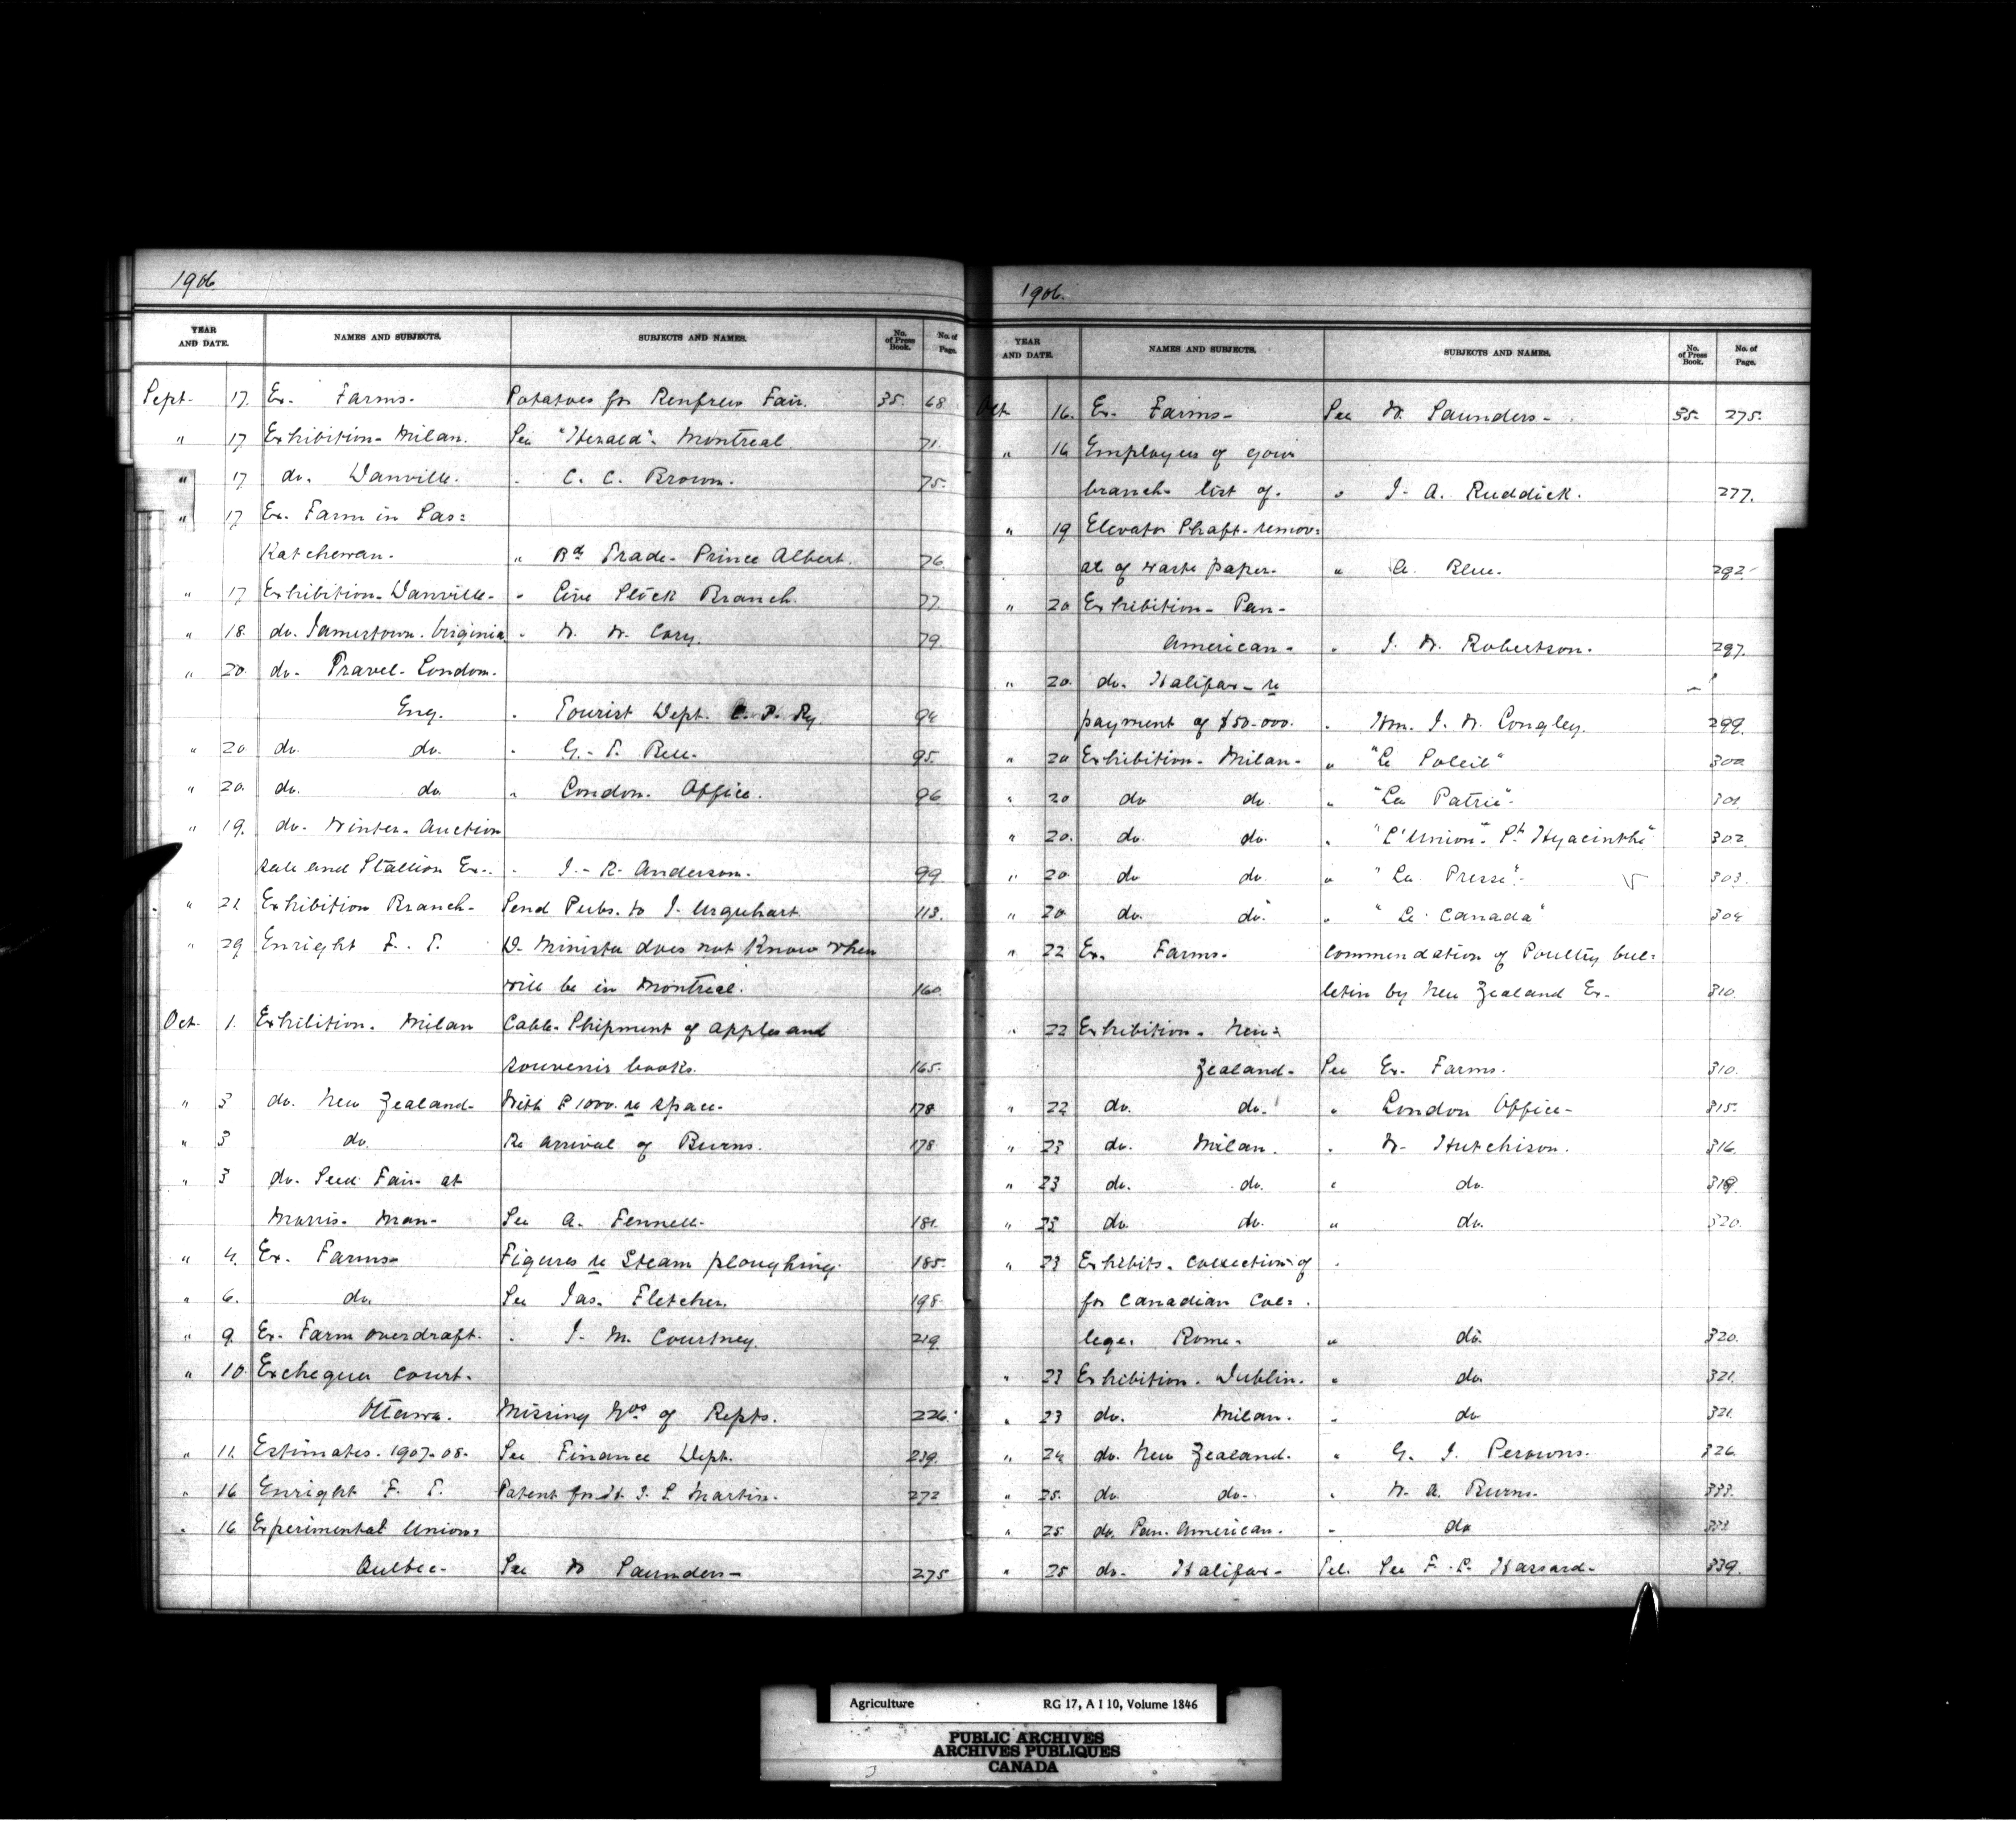 1906.
YEAR AND DATE. NAMES AND SUBJECTS. SUBJECTS AND NAMES. No. of Press Book. No. of Page.
Sept. 17. Ex. Farms. Potatoes for Renfrew Fair. 35. 68.
" 17 Exhibition - Milan. See "Herald" - Montreal. 71.
" 17 do. Danville. " C. C. Brown. 75.
" 17 Ex. Farm in Sas=
katchewan. " Bd Trade - Prince Albert. 76.
" 17 Exhibition - Danville - " Live Stock Branch. 77.
" 18. do. Jamestown. Virginia " W. W. Cary. 79.
" 20. do. Travel - London.
Eng. " Tourist Dept. C. P. Ry 94
" 20 do. do. " G. T. Bell. 95.
" 20. do. do. " London Office. 96
" 19. do. Winter - Auction
sale and Stallion Ex. " J. R. Anderson. 99.
" 21 Exhibition Branch - Send Pubs. to J. Urquhart 113.
" 29 Enright F. T. D. Minister does not know when
will be in Montreal. 160.
Oct. 1. Exhibition. Milan Cable - Shipment of apples and
souvenir books. 165.
" 3 do. New Zealand - With £1000 re space. 178
" 3 do. Re arrival of Burns. 178
" 3 do. Seed Fair at
Morris - Man - See A. Fennell. 181.
" 4. Ex. Farms - Figures re Steam ploughing. 185.
" 6. do. See Jas. Fletcher. 198.
" 9. Ex. Farm overdraft. " J. M. Courtney. 219.
" 10. Exchequer Court.
Ottawa. Missing Nos of Repts. 226.
" 11. Estimates. 1907-08. See Finance Dept. 239.
" 16 Enright F. T. Patent for J. S. Martin. 272
" 16. Experimental Union=
Quebec - See W Saunders - 275
1906.
YEAR AND DATE. NAMES AND SUBJECTS. SUBJECTS AND NAMES. No. of Press Book. No. of Page.
Oct. 16. Ex. Farms - See W. Saunders - 35. 275.
" 16 Employees of your
branch - list of. " J. A. Ruddick. 277.
" 19 Elevator Shaft - remov=
al of waste paper. " A. Blue. 292
" 20 Exhibition - Pan -
American - " J. W. Robertson. 297.
" 20. do. Halifax - re
payment of $50.000. " Hon. J. W. Longley. 299.
" 20 Exhibition - Milan - " "Le Soleil" 300
" 20 do do. " "La Patrie" 301.
" 20. do. do. " "L'Union" St. Hyacinthe" 302.
" 20. do do. " "La Presse" 303.
" 20 do. do. " "Le Canada" 304
" 22 Ex. Farms. Commendation of Poultry bul=
letin by New Zealand Ex. 310.
" 22 Exhibition - New=
Zealand - See Ex. Farms. 310.
" 22 do. do. " London Office - 315.
" 23 do. Milan. " W. Hutchison. 316.
" 23 do. do. " do. 319.
" 23 do. do. " do. 320.
" 23 Exhibits. collection of
for Canadian Col=
lege. Rome. " do. 320.
" 23 Exhibition. Dublin. " do. 321.
" 23 do. Milan. " do 321.
" 24 do. New Zealand. " G. J. Perowns. 326.
" 25. do. do. " W. A. Burns. 333.
" 25 do. Pan. American. " do 333
" 25 do. Halifax - Tel. See F. L. Haszard. 339.
Agriculture RG 17, A I 10, Volume 1846
PUBLIC ARCHIVES
ARCHIVES PUBLIQUES
CANADA